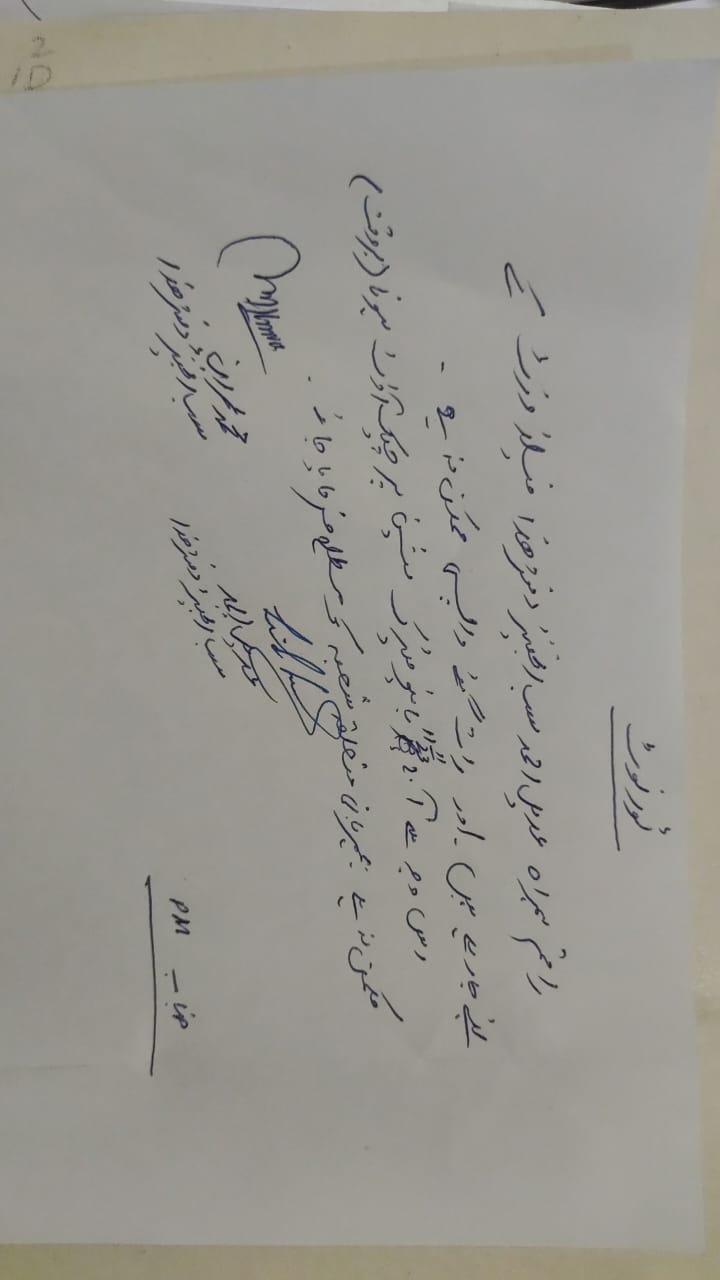 ٹور نوٹ
راقم ہمراہ عدیل احمد سب انجینئر دفتر ھذا فیلڈ وزٹ کے
لیئے جا رہے ہیں۔ اور رات گئے واپسی ممکن نہ ہے۔
اس وجہ سے آج بائیو میٹرک مشین پر چیک آؤٹ ہونا (بروقت)
ممکن نہ ہے بمہربانی متعلقہ شعبہ کو مطلع فرمایا جائے۔
عدیل احمد
سب انجینئر دفتر ھذا
محمد عمران
سب انجینئر دفتر ھذا
جناب PM